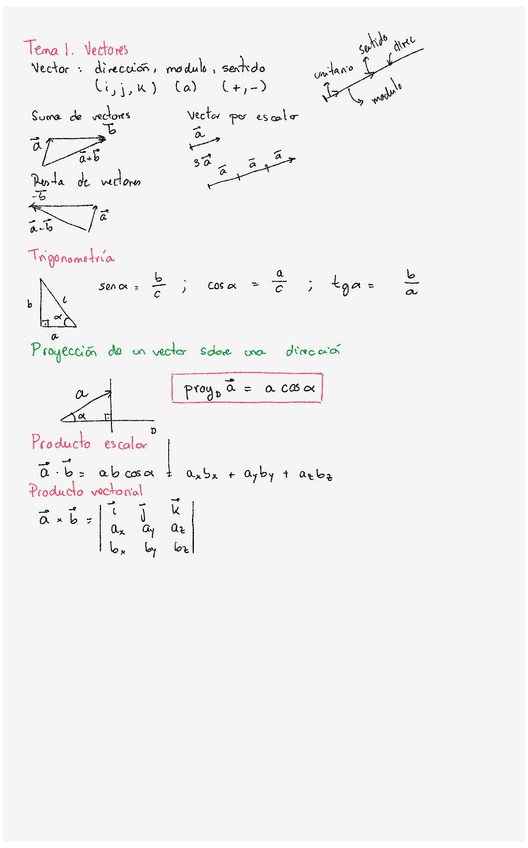 Tema 1. Vectores
Vector : dirección, modulo, sentido
(i, j, k) (a) (+, -)
unitario sentido direc
modulo
Suma de vectores
a⃗ b⃗
a⃗+b⃗
Vector por escalar
a⃗
3a⃗ a⃗ a⃗ a⃗
Resta de vectores
-b⃗
a⃗-b⃗ a⃗
Trigonometría
b c α a
sen α = b/c ; cos α = a/c ; tg α = b/a
Proyección de un vector sobre una dirección
a α D
proy_D a⃗ = a cos α
Producto escalar
a⃗ · b⃗ = ab cos α = aₓbₓ + a_y b_y + a_z b_z
Producto vectorial
a⃗ × b⃗ = | i⃗ j⃗ k⃗ |
| aₓ a_y a_z |
| bₓ b_y b_z |